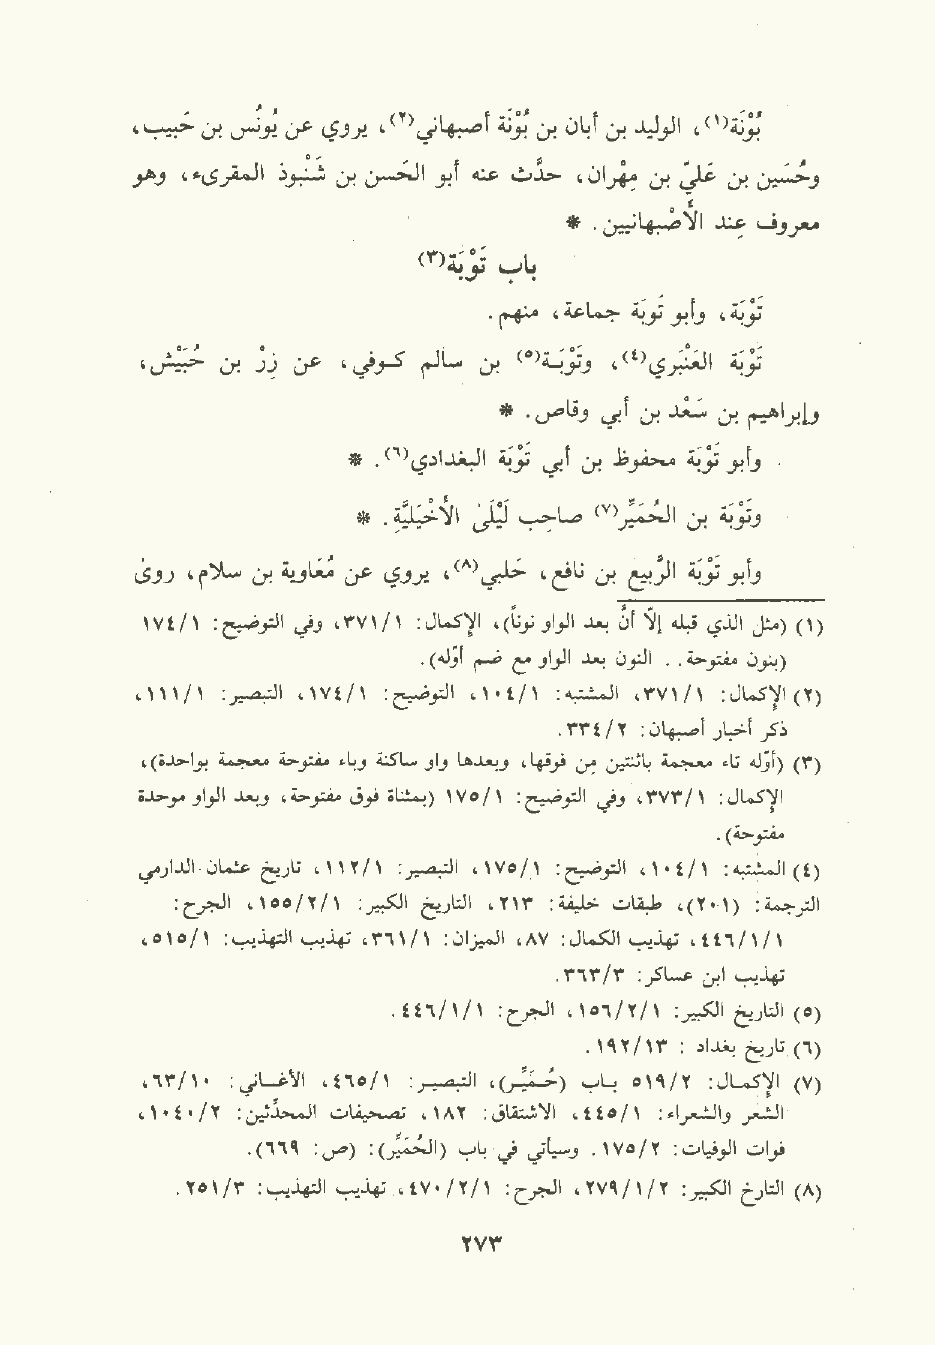 بُوْنَة(١)، الوليد بن أبان بن بُوْنَة أصبهاني(٢)، يروي عن يُونُس بن حَبيب،
وحُسَين بن عَليّ بن مِهْران، حدَّث عنه أبو الحَسن بن شَنْبوذ المقرىء، وهو
معروف عِند الأَصْبهانيين. *
باب تَوْبَة(٣)
تَوْبَة، وأبو تَوبَة جماعة، منهم.
تَوْبَة العَنْبَري(٤)، وتَوْبَة(٥) بن سالم كوفي، عن زِرّ بن حُبَيْش،
وإبراهيم بن سَعْد بن أبي وقاص. *
وأبو تَوْبَة محفوظ بن أبي تَوْبَة البغدادي(٦). *
وتَوْبَة بن الحُمَيِّر(٧) صاحِب لَيْلَىٰ الأَخْيَليَّةِ. *
وأبو تَوْبَة الرَّبيع بن نافع، حَلبي(٨)، يروي عن مُعَاوية بن سلام، روى
(١) (مثل الذي قبله إلّا أنّ بعد الواو نوناً)، الإكمال: ١/ ٣٧١، وفي التوضيح: ١/ ١٧٤
(بنون مفتوحة. . النون بعد الواو مع ضم أوّله).
(٢) الإكمال: ١/ ٣٧١، المشتبه: ١/ ١٠٤، التوضيح: ١/ ١٧٤، التبصير: ١/ ١١١،
ذكر أخبار أصبهان: ٢/ ٣٣٤.
(٣) (أوّله تاء معجمة باثنتين مِن فوقها، وبعدها واو ساكنة وباء مفتوحة معجمة بواحدة)،
الإكمال: ١/ ٣٧٣، وفي التوضيح: ١/ ١٧٥ (بمثناة فوق مفتوحة، وبعد الواو موحدة
مفتوحة).
(٤) المشتبه: ١/ ١٠٤، التوضيح: ١/ ١٧٥، التبصير: ١/ ١١٢، تاريخ عثمان الدارمي
الترجمة: (٢٠١)، طبقات خليفة: ٢١٣، التاريخ الكبير: ١/ ٢/ ١٥٥، الجرح:
١/ ١/ ٤٤٦، تهذيب الكمال: ٨٧، الميزان: ١/ ٣٦١، تهذيب التهذيب: ١/ ٥١٥،
تهذيب ابن عساكر: ٣/ ٣٦٣.
(٥) التاريخ الكبير: ١/ ٢/ ١٥٦، الجرح: ١/ ١/ ٤٤٦.
(٦) تاريخ بغداد : ١٣/ ١٩٢.
(٧) الإكمال: ٢/ ٥١٩ باب (حُمَيِّر)، التبصير: ١/ ٤٦٥، الأغاني: ١٠/ ٦٣،
الشعر والشعراء: ١/ ٤٤٥، الاشتقاق: ١٨٢، تصحيفات المحدّثين: ٢/ ١٠٤٠،
فوات الوفيات: ٢/ ١٧٥. وسيأتي في باب (الحُمَيِّر): (ص: ٦٦٩).
(٨) التارخ الكبير: ٢/ ١/ ٢٧٩، الجرح: ١/ ٢/ ٤٧٠، تهذيب التهذيب: ٣/ ٢٥١.
٢٧٣